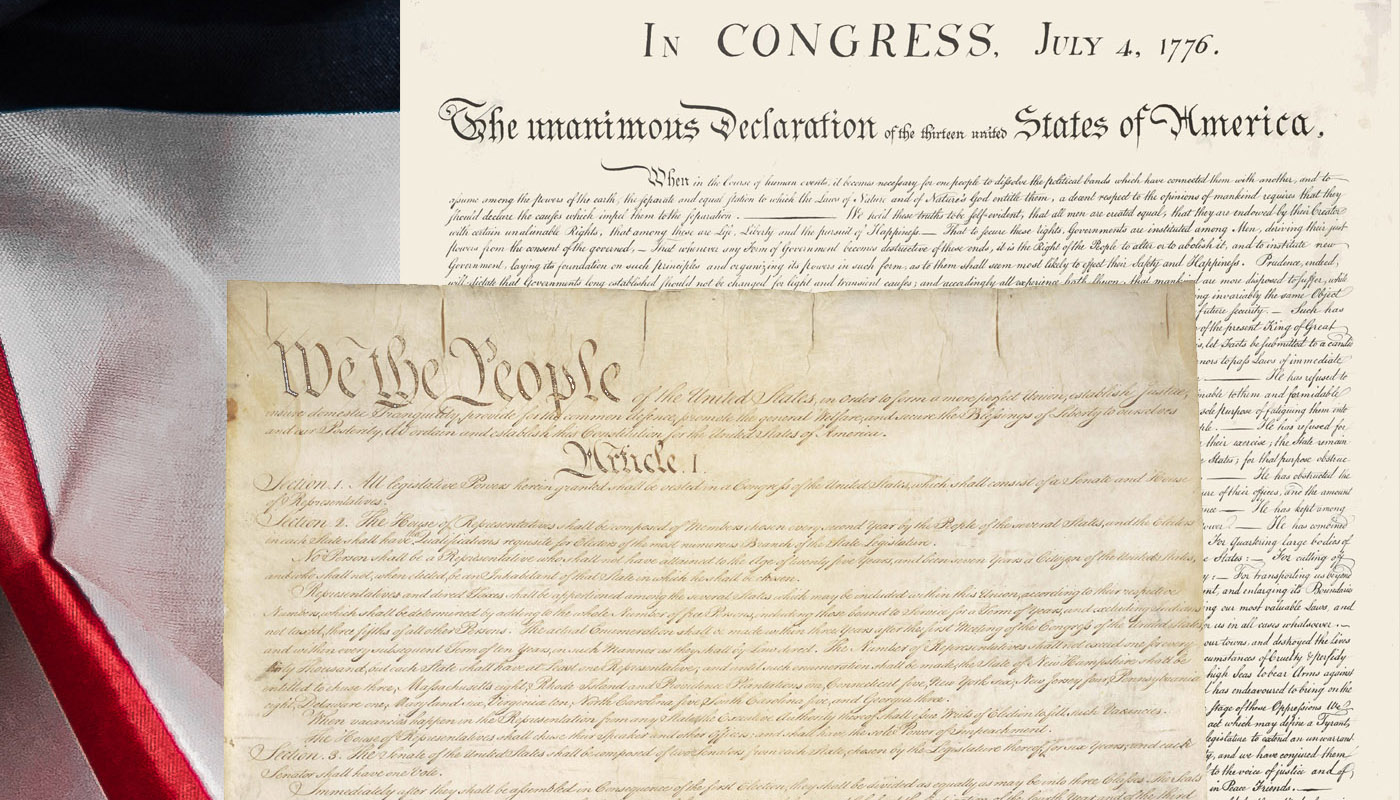 In CONGRESS, July 4, 1776.
The unanimous Declaration of the thirteen united States of America,
When in the Course of human events, it becomes necessary for one people to dissolve the political bands which have connected them with another, and to
assume among the powers of the earth, the separate and equal station to which the Laws of Nature and of Nature's God entitle them, a decent respect to the opinions of mankind requires that they
should declare the causes which impel them to the separation. — We hold these truths to be self-evident, that all men are created equal, that they are endowed by their Creator
with certain unalienable Rights, that among these are Life, Liberty and the pursuit of Happiness.— That to secure these rights, Governments are instituted among Men, deriving their just
powers from the consent of the governed, — That whenever any Form of Government becomes destructive of these ends, it is the Right of the People to alter or to abolish it, and to institute new
Government, laying its foundation on such principles and organizing its powers in such form, as to them shall seem most likely to effect their Safety and Happiness. Prudence, indeed,
will dictate that Governments long established should not be changed for light and transient causes; and accordingly all experience hath shewn, that mankind are more disposed to suffer, while
invariably the same Object
future security. — Such has
of the present King of Great
let Facts be submitted to a candid
to pass Laws of immediate
— He has refused to
them and formidable
sole purpose of fatiguing them into
— He has refused for
their exercise; the State remain
States; for that purpose obstruc
— He has obstructed the
of their offices, and the amount
— He has kept among
— He has combined
For quartering large bodies of
States: — For cutting off
— For transporting us beyond
and enlarging its Boundaries
our most valuable Laws, and
us in all cases whatsoever. —
our towns, and destroyed the Lives
of Cruelty & perfidy
high Seas to bear Arms against
has endeavoured to bring on the
stage of these Oppressions We
act which may define a Tyrant,
legislature to extend an unwarrant
and we have conjured them
to the voice of justice and of
in Peace Friends. —
We the People of the United States, in order to form a more perfect Union, establish Justice,
insure domestic Tranquility, provide for the common defence, promote the general Welfare, and secure the Blessings of Liberty to ourselves
and our Posterity, do ordain and establish this Constitution for the United States of America.
Article. I.
Section. 1. All legislative Powers herein granted shall be vested in a Congress of the United States, which shall consist of a Senate and House
of Representatives.
Section. 2. The House of Representatives shall be composed of Members chosen every second Year by the People of the several States, and the Electors
in each State shall have the Qualifications requisite for Electors of the most numerous Branch of the State Legislature.
No Person shall be a Representative who shall not have attained to the Age of twenty five Years, and been seven Years a Citizen of the United States,
and who shall not, when elected, be an Inhabitant of that State in which he shall be chosen.
Representatives and direct Taxes shall be apportioned among the several States which may be included within this Union, according to their respective
Numbers, which shall be determined by adding to the whole Number of free Persons, including those bound to Service for a Term of Years, and excluding Indians
not taxed, three fifths of all other Persons. The actual Enumeration shall be made within three Years after the first Meeting of the Congress of the United States,
and within every subsequent Term of ten Years, in such Manner as they shall by Law direct. The Number of Representatives shall not exceed one for every
thirty Thousand, but each State shall have at Least one Representative; and until such enumeration shall be made, the State of New Hampshire shall be
entitled to chuse three, Massachusetts eight, Rhode Island and Providence Plantations one, Connecticut five, New York six, New Jersey four, Pennsylvania
eight, Delaware one, Maryland six, Virginia ten, North Carolina five, South Carolina five, and Georgia three.
When vacancies happen in the Representation from any State, the Executive Authority thereof shall issue Writs of Election to fill such Vacancies.
The House of Representatives shall chuse their Speaker and other Officers; and shall have the sole Power of Impeachment.
Section. 3. The Senate of the United States shall be composed of two Senators from each State, chosen by the Legislature thereof, for six Years; and each
Senator shall have one Vote.
Immediately after they shall be assembled in Consequence of the first Election, they shall be divided as equally as may be into three Classes. The Seats